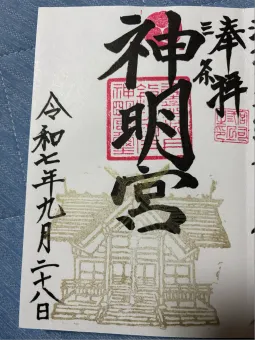 奉拝
三条
神明宮
令和七年九月二十八日